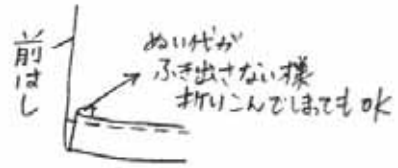 前はし
ぬい代が
ふき出さない様
折りこんでしまってもOK